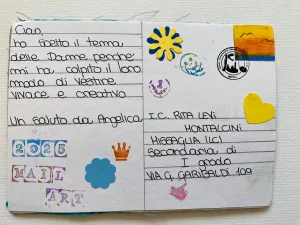 Ciao,
ho scelto il tema
delle Dame perché
mi ha colpito il loro
modo di vestire
vivace e creativo
Un saluto da Angelica
2025
MAIL
ART
I.C. RITA LEVI
MONTALCINI
MISSAGLIA (LC)
secondaria di
I grado
VIA G. GARIBALDI 109